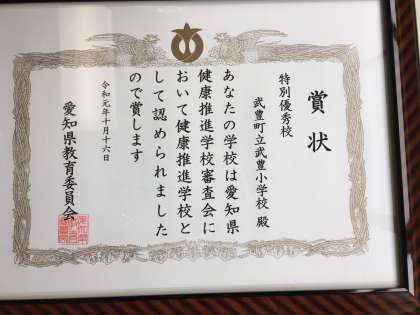 賞状
特別優秀校
武豊町立武豊小学校 殿
あなたの学校は愛知県
健康推進学校審査会に
おいて健康推進学校と
して認められました
ので賞します
令和元年十月十六日
愛知県教育委員会